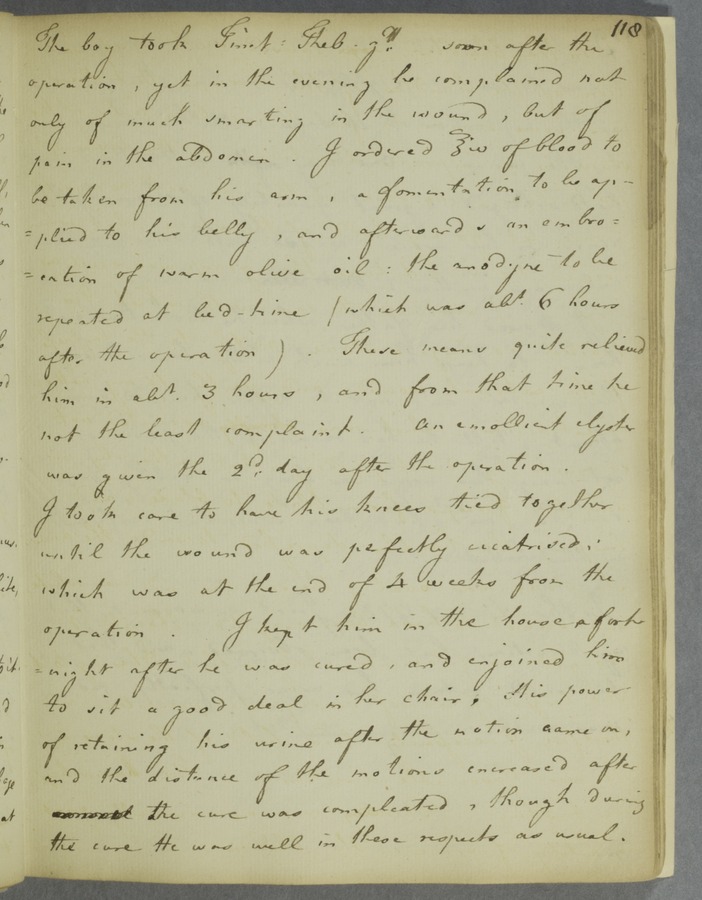 118
The boy took Tinct: Theb. soon after the
operation, yet in the evening he complained not
only of much smarting in the wound, but of
pain in the abdomen. I ordered ℥iv of blood to
be taken from his arm, a fomentation to be ap-
=plied to his belly, and afterwards an embro=
=cation of warm olive oil: the anodyne to be
repeated at bed-time (which was abt. 6 hours
after the operation). These means quite relieved
him in abt. 3 hours, and from that time he
not the least complaint. An emollient clyster
was given the 2d. day after the operation.
I took care to have his knees tied together
until the wound was perfectly cicatrised;
which was at the end of 4 weeks from the
operation. I kept him in the house a fort
=night after he was cured, and enjoined him
to sit a good deal in her chair; His power
of retaining his urine after the motion came on,
and the distance of the motions encreased after
the cure was compleated, though during
the cure He was well in these respects as usual.